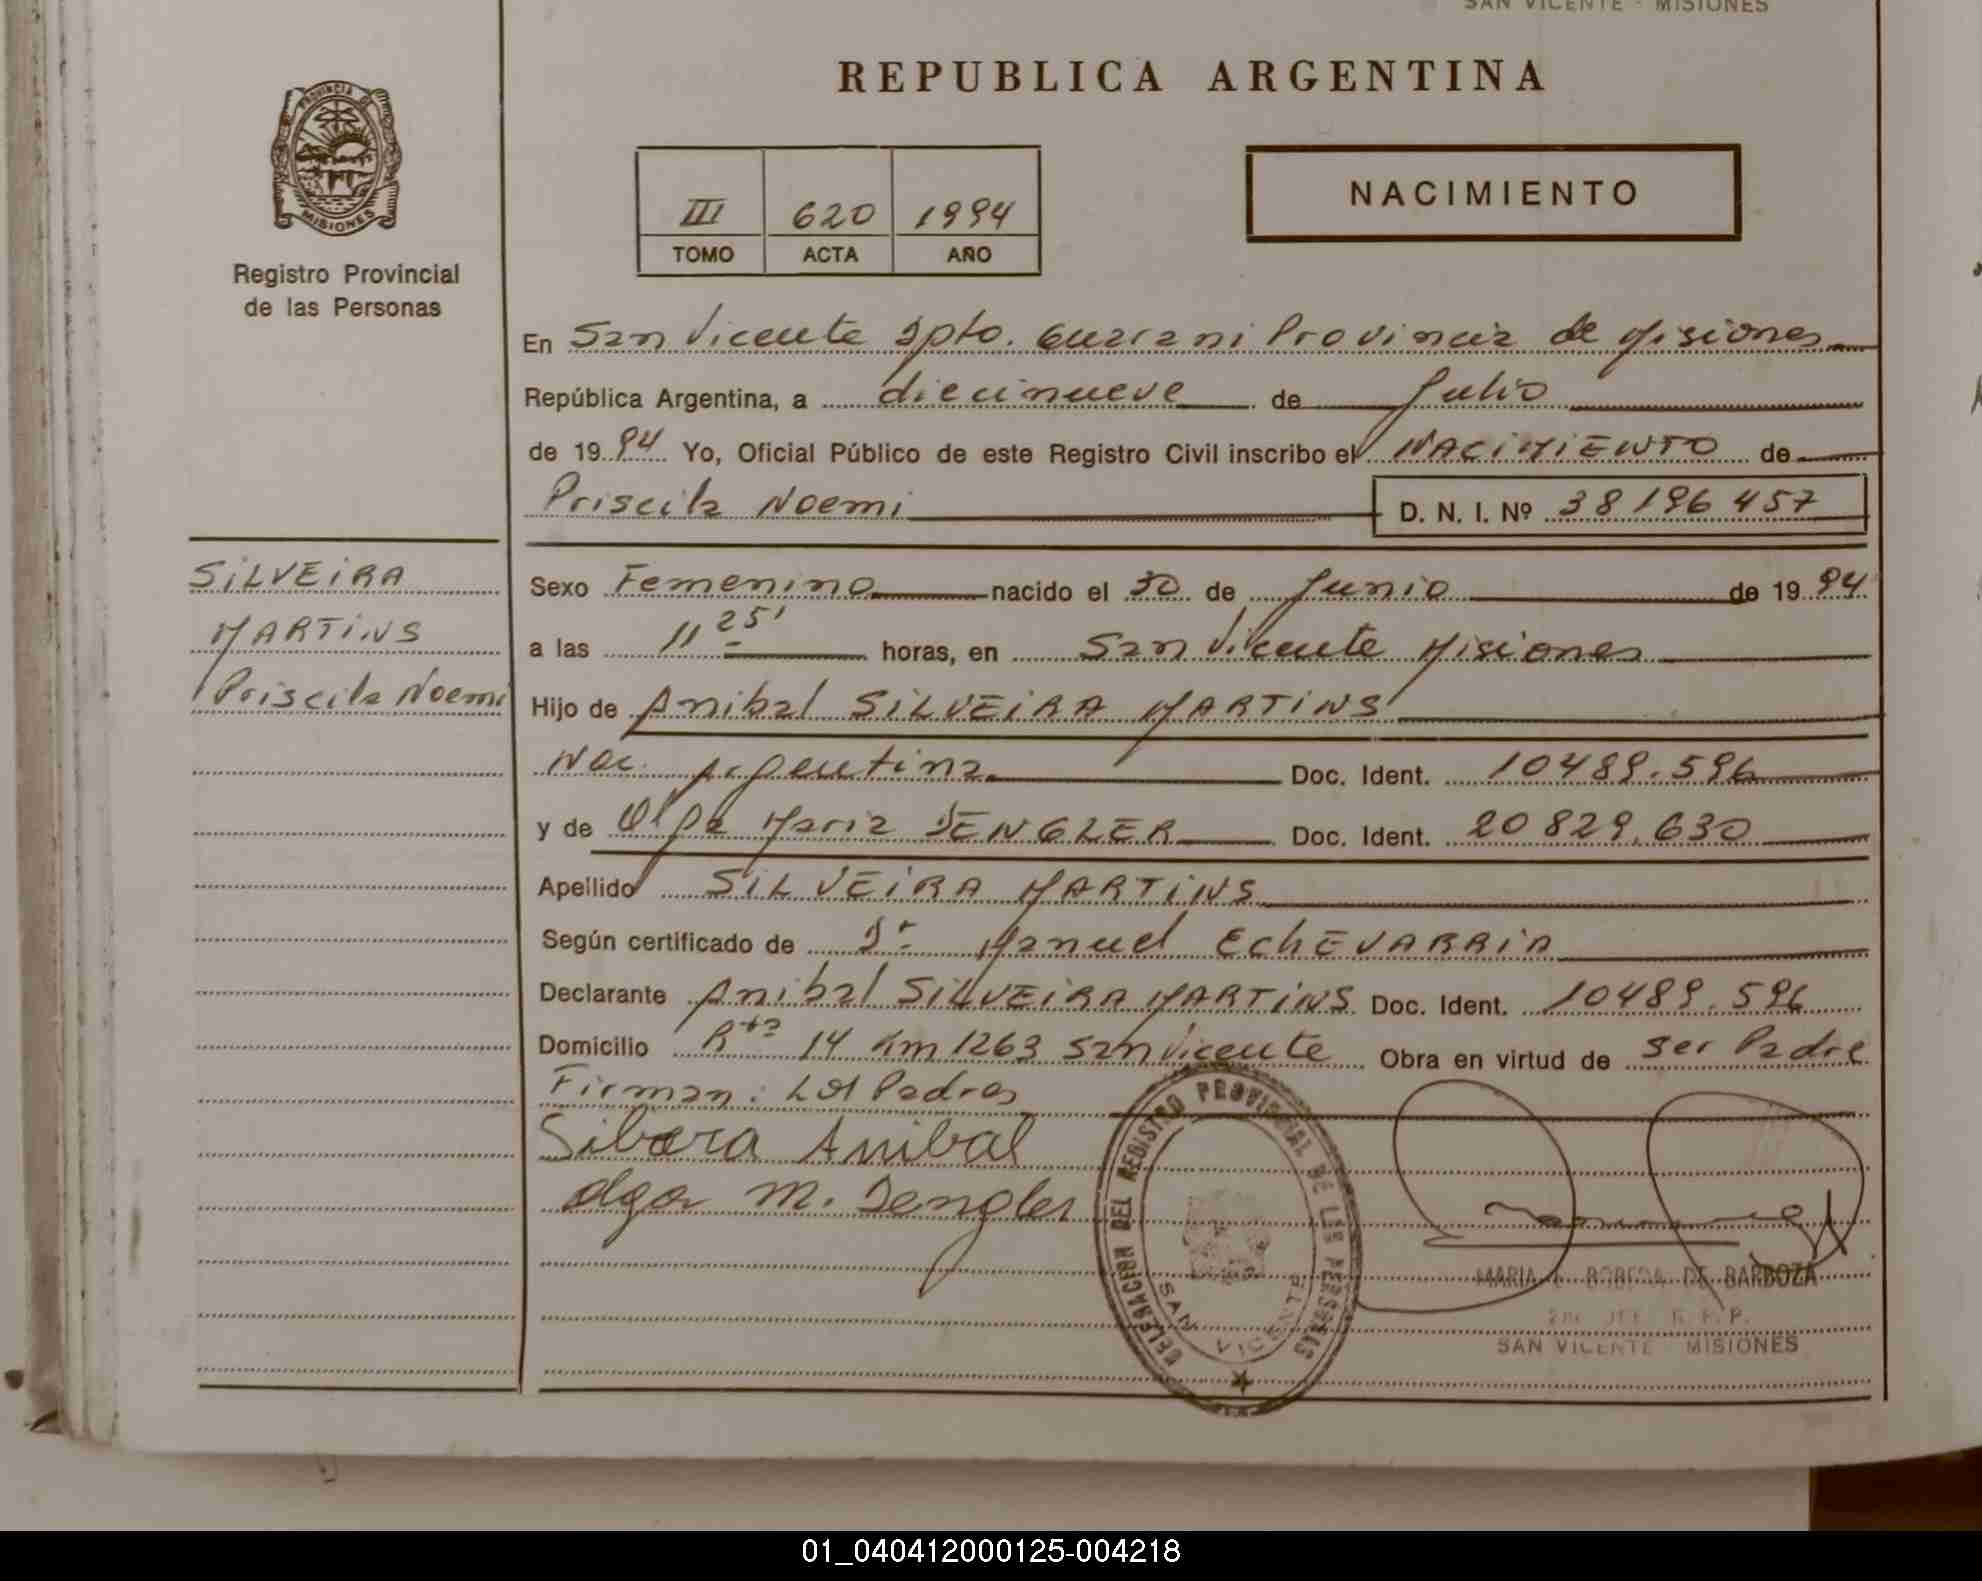 SAN VICENTE - MISIONES
REPUBLICA ARGENTINA
PROVINCIA DE
MISIONES
Registro Provincial
de las Personas
III 620 1994
TOMO ACTA AÑO
NACIMIENTO
En San Vicente Dpto. Guarani Provincia de Misiones
República Argentina, a diecinueve de Julio
de 1994 Yo, Oficial Público de este Registro Civil inscribo el NACIMIENTO de
Priscila Noemi D. N. I. Nº 38196457
SILVEIRA
MARTINS
Priscila Noemi
Sexo Femenino nacido el 30 de Junio de 1994
a las 11 25' horas, en San Vicente Misiones
Hijo de Anibal SILVEIRA MARTINS
Nac. Argentina Doc. Ident. 10489.596
y de Olga Maria DENGLER Doc. Ident. 20829.630
Apellido SILVEIRA MARTINS
Según certificado de Dr. Manuel ECHEVARRIA
Declarante Anibal SILVEIRA MARTINS Doc. Ident. 10489.596
Domicilio Rta 14 Km 1263 San Vicente Obra en virtud de ser Padre
Firman: Los Padres
Silvera Anibal
Olga M. Dengler
DELEGACION DEL REGISTRO PROVINCIAL DE LAS PERSONAS
SAN VICENTE
MARIA DE BARBOZA
R. P. P.
SAN VICENTE - MISIONES
01_040412000125-004218